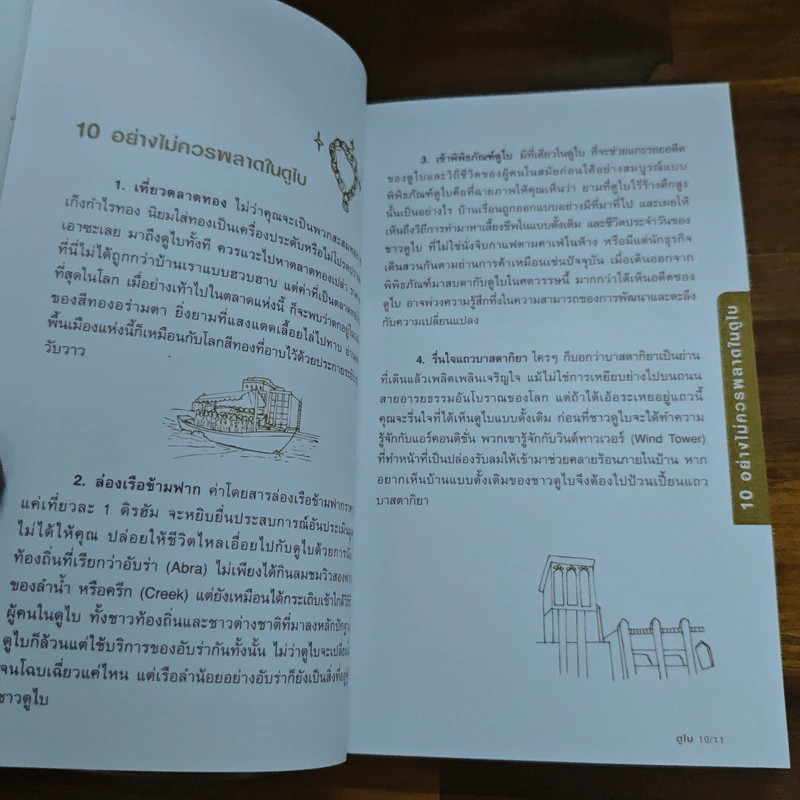 10 อย่างไม่ควรพลาดในดูไบ
1. เที่ยวตลาดทอง ไม่ว่าคุณจะเป็นพวกสะสมทอง
เก็งกำไรทอง นิยมใส่ทองเป็นเครื่องประดับหรือไม่โปรด
เอาซะเลย มาถึงดูไบทั้งที ควรแวะไปหาตลาดทองเปล่า
ที่นี่ไม่ได้ถูกกว่าบ้านเราแบบฮวบฮาบ แต่ค่าที่เป็นตลาดทอง
ที่สุดในโลก เมื่อย่างเท้าไปในตลาดแห่งนี้ ก็จะพบว่าตกอยู่ใน
ของสีทองอร่ามตา ยิ่งยามที่แสงแดดเลื้อยไล่ไปทาบ
พื้นเมืองแห่งนี้ก็เหมือนกับโลกสีทองที่อาบไว้ด้วยประกาย
วับวาว
2. ล่องเรือข้ามฟาก ค่าโดยสารล่องเรือข้ามฟาก
แค่เที่ยวละ 1 ดิรฮัม จะหยิบยื่นประสบการณ์อันประเมิน
ไม่ได้ให้คุณ ปล่อยให้ชีวิตไหลเอื่อยไปกับดูไบด้วยการ
ท้องถิ่นที่เรียกว่าอับร่า (Abra) ไม่เพียงได้กินลมชมวิวสอง
ของลำน้ำ หรือครีก (Creek) แต่ยังเหมือนได้กระเถิบเข้าใกล้
ผู้คนในดูไบ ทั้งชาวท้องถิ่นและชาวต่างชาติที่มาลงหลักปักฐาน
ดูไบก็ล้วนแต่ใช้บริการของอับร่ากันทั้งนั้น ไม่ว่าดูไบจะเปลี่ยน
จนโฉบเฉี่ยวแค่ไหน แต่เรือลำน้อยอย่างอับร่าก็ยังเป็นสิ่งที่
ชาวดูไบ
3. เข้าพิพิธภัณฑ์ดูไบ มีที่เดียวในดูไบ ที่จะช่วยแกะรอยอดีต
ของดูไบและวิถีชีวิตของผู้คนในสมัยก่อนได้อย่างสมบูรณ์แบบ
พิพิธภัณฑ์ดูไบคือที่ฉายภาพให้คุณเห็นว่า ยามที่ดูไบไร้ร้างตึกสูง
นั้นเป็นอย่างไร บ้านเรือนถูกออกแบบอย่างมีที่มาที่ไป และเผยให้
เห็นถึงวิธีการทำมาหาเลี้ยงชีพในแบบดั้งเดิม และชีวิตประจำวันของ
ชาวดูไบ ที่ไม่ใช่นั่งจิบกาแฟตามคาเฟ่ในห้าง หรือมีแต่นักธุรกิจ
เดินสวนกันตามย่านการค้าเหมือนเช่นปัจจุบัน เมื่อเดินออกจาก
พิพิธภัณฑ์มาสบตากับดูไบในศตวรรษนี้ มากกว่าได้เห็นอดีตของ
ดูไบ อาจพ่วงความรู้สึกทึ่งในความสามารถของการพัฒนาและตะลึง
กับความเปลี่ยนแปลง
4. รื่นใจแถวบาสตากิยา ใครๆ ก็บอกว่าบาสตากิยาเป็นย่าน
ที่เดินแล้วเพลิดเพลินเจริญใจ แม้ไม่ใช่การเหยียบย่างไปบนถนน
สายอารยธรรมอันโบราณของโลก แต่ถ้าได้เอ้อระเหยอยู่แถวนี้
คุณจะรื่นใจที่ได้เห็นดูไบแบบดั้งเดิม ก่อนที่ชาวดูไบจะได้ทำความ
รู้จักกับแอร์คอนดิชั่น พวกเขารู้จักกับวินด์ทาวเวอร์ (Wind Tower)
ที่ทำหน้าที่เป็นปล่องรับลมให้เข้ามาช่วยคลายร้อนภายในบ้าน หาก
อยากเห็นบ้านแบบดั้งเดิมของชาวดูไบจึงต้องไปป้วนเปี้ยนแถว
บาสตากิยา
10 อย่างไม่ควรพลาดในดูไบ
ดูไบ 10/11